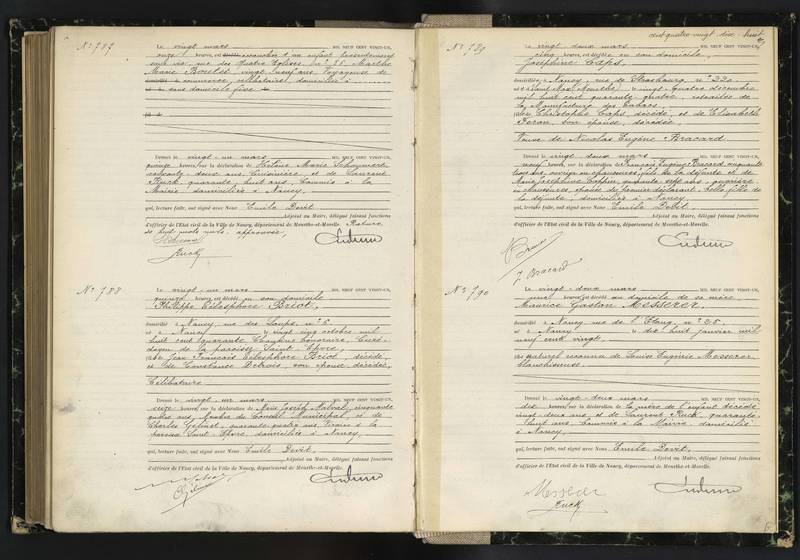 N° 787
Le vingt mars MIL NEUF CENT VINGT-UN,
onze heures, est accouchée d'un enfant
sans vie, rue des Quatre Eglises, n° 35, Marthe
Marie Boulet, vingt neuf ans, Voyageuse de
commerce, célibataire domiciliée à
sans domicile fixe
Dressé le vingt-un mars MIL NEUF CENT VINGT-UN,
quinze heures, sur la déclaration de Hélène Marie
soixante-deux ans, Cuisinière, et de Laurent
Ruck, quarante huit ans, Commis à la
Mairie, domiciliés à Nancy,
qui, lecture faite, ont signé avec Nous Emile Devit
Adjoint au Maire, délégué faisant fonctions
d'officier de l'Etat civil de la Ville de Nancy, département de Meurthe-et-Moselle.
huit mots nuls, approuvés,
Ruck
N° 788
Le vingt-un mars MIL NEUF CENT VINGT-UN,
quinze heures, est décédé en son domicile
Philippe Télesphore Briot,
domicilié à Nancy, rue des Loups, n° 6
né à Nancy le vingt cinq octobre mil
huit cent quarante, Chanoine honoraire, Curé-
doyen de la paroisse Saint-Epvre,
fils de Jean François Télesphore Briot, décédé,
et de Constance Detrois, son épouse, décédée,
Célibataire
Dressé le vingt-un mars MIL NEUF CENT VINGT-UN,
seize heures, sur la déclaration de Marie Joseph Malval, cinquante
quatre ans, Membre du Conseil Municipal, et de
Charles Gélinet, quarante quatre ans, Vicaire à la
paroisse Saint Epvre, domiciliés à Nancy,
qui, lecture faite, ont signé avec Nous Emile Devit,
Adjoint au Maire, délégué faisant fonctions
d'officier de l'Etat civil de la Ville de Nancy, département de Meurthe-et-Moselle.
cent quatre-vingt dix-huit
N° 789
Le vingt-deux mars MIL NEUF CENT VINGT-UN,
cinq heures, est décédée en son domicile,
Joséphine Caps,
domiciliée à Nancy, rue de Strasbourg, n° 220
née à (Meurthe) le vingt-quatre décembre
mil huit cent quarante-quatre, retraitée de
la Manufacture des tabacs,
fille de Christophe Caps, décédé, et de Elisabeth
son épouse, décédée,
Veuve de Nicolas Eugène Bracard
Dressé le vingt deux mars MIL NEUF CENT VINGT-UN,
neuf heures, sur la déclaration de François Eugène Bracard, cinquante
trois ans, ouvrier en chaussures, fils de la défunte et de
Marie Joséphine quarante sept ans, ouvrière
en chaussures, épouse du premier déclarant, belle fille de
la défunte, domiciliés à Nancy,
qui, lecture faite, ont signé avec Nous Emile Devit
Adjoint au Maire, délégué faisant fonctions
d'officier de l'Etat civil de la Ville de Nancy, département de Meurthe-et-Moselle.
J. Bracard
N° 790
Le vingt-deux mars MIL NEUF CENT VINGT-UN,
une heure, est décédé au domicile de sa mère
Maurice Gaston Messerer,
domicilié à Nancy, rue de l'Etang, n° 28
né à Nancy le dix huit janvier mil
neuf cent vingt
fils naturel reconnu de Louise Eugénie Messerer
blanchisseuse
Dressé le vingt-deux mars MIL NEUF CENT VINGT-UN,
dix heures, sur la déclaration de la mère de l'enfant décédé
vingt-deux ans, et de Laurent Ruck, quarante-
huit ans, Commis à la Mairie, domiciliés
à Nancy,
qui, lecture faite, ont signé avec Nous Emile Devit,
Adjoint au Maire, délégué faisant fonctions
d'officier de l'Etat civil de la Ville de Nancy, département de Meurthe-et-Moselle.
Messerer
Ruck